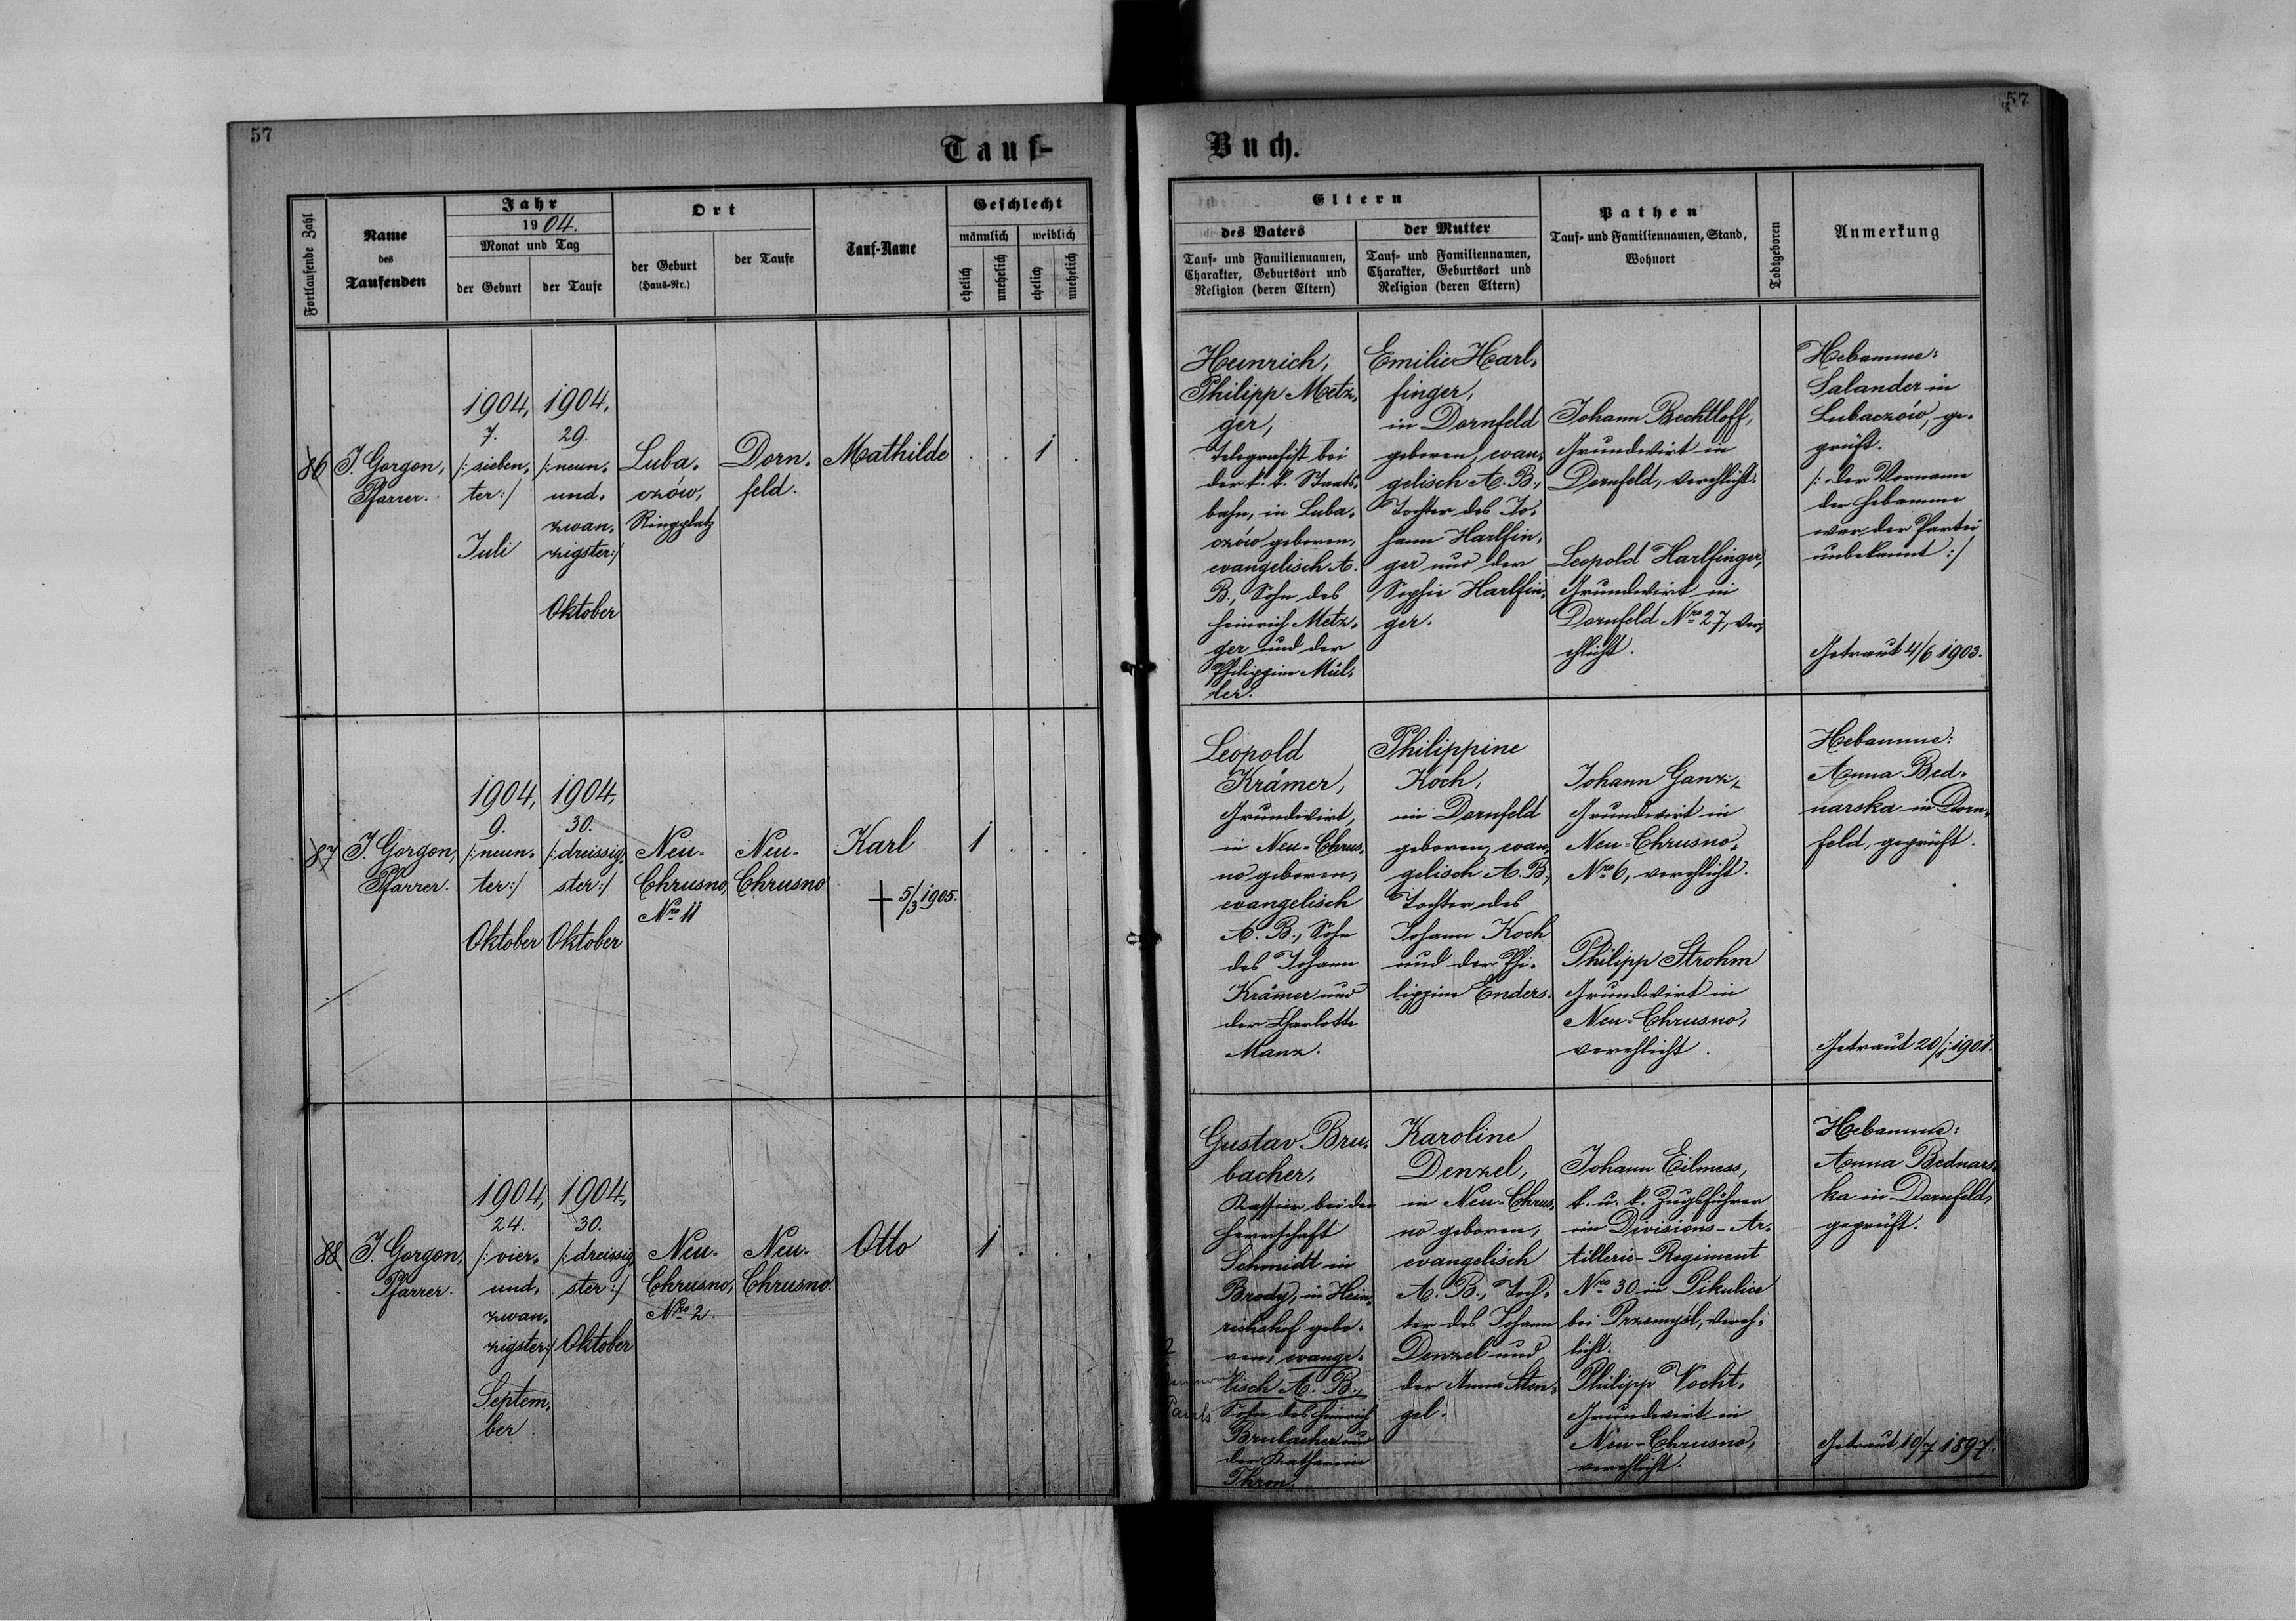 57
57
Tauf-
Buch.
Fortlaufende Zahl
Name
des
Taufenden
Jahr
1904.
Monat und Tag
der Geburt
der Taufe
Ort
der Geburt
(Haus-Nr.)
der Taufe
Tauf-Name
Geschlecht
männlich
weiblich
ehelich
unehelich
ehelich
unehelich
Eltern
des Vaters
Tauf- und Familiennamen,
Charakter, Geburtsort und
Religion (deren Eltern)
der Mutter
Tauf- und Familiennamen,
Charakter, Geburtsort und
Religion (deren Eltern)
Pathen
Tauf- und Familiennamen, Stand,
Wohnort
Todtgeboren
Anmerkung
86
J. Gorgon,
Pfarrer.
1904,
7.
/: sieben-
ter :/
Juli
1904,
29.
/: neun-
und-
zwan-
zigster :/
Oktober
Luba-
czów,
Ringplatz
Dorn-
feld.
Mathilde
. . 1 .
Heinrich,
Philipp Metz-
ger,
Telegrafist bei
der k. k. Staats-
bahn, in Luba-
czów geboren,
evangelisch A.
B., Sohn des
Heinrich Metz-
ger und der
Philippine Mül-
ler.
Emilie Harl-
finger,
in Dornfeld
geboren, evan-
gelisch A. B.,
Tochter des Jo-
hann Harlfin-
ger und der
Sophie Harlfin-
ger.
Johann Bechtloff,
Grundwirt in
Dornfeld, verehlicht.
Leopold Harlfinger,
Grundwirt in
Dornfeld Nro 27, ver-
ehlicht.
Hebamme:
Salander in
Lubaczów, ge-
prüft.
/: Der Vorname
der Hebamme
war der Partei
unbekannt :/
Getraut 4/6 1903.
87
J. Gorgon,
Pfarrer.
1904,
9.
/: neun-
ter :/
Oktober
1904,
30.
/: dreissig-
ster :/
Oktober
Neu-
Chrusno,
Nro 11
Neu-
Chrusno
Karl
+ 5/3 1905.
1 . . .
Leopold
Krämer,
Grundwirt,
in Neu-Chrus-
no geboren,
evangelisch
A. B., Sohn
des Johann
Krämer und
der Charlotte
Manz.
Philippine
Koch,
in Dornfeld
geboren, evan-
gelisch A. B.,
Tochter des
Johann Koch
und der Phi-
lippine Enders.
Johann Ganz,
Grundwirt in
Neu-Chrusno,
Nro 6, verehlicht.
Philipp Strohm
Grundwirt in
Neu-Chrusno,
verehlicht.
Hebamme:
Anna Bed-
narska in Dorn-
feld, geprüft.
Getraut 20/1 1901.
88
J. Gorgon,
Pfarrer.
1904,
24.
/: vier-
und-
zwan-
zigster :/
Septem-
ber
1904,
30.
/: dreissig-
ster :/
Oktober
Neu-
Chrusno,
Nro 2.
Neu-
Chrusno.
Otto
1 . . .
Gustav Bru-
bacher,
Kassier bei der
Herrschaft
Schmidt in
Brody, in Hein-
richshof gebo-
ren, evange-
lisch A. B.,
Sohn des Heinrich
Brubacher und
der Katharina
Thron.
Karoline
Denzel,
in Neu-Chrus-
no geboren,
evangelisch
A. B., Toch-
ter des Johann
Denzel und
der Anna Sten-
gel.
Johann Eilmess,
k. u. k. Zugsführer
im Divisions-Ar-
tillerie-Regiment
Nro 30 in Pikulice
bei Przemyśl, vereh-
licht.
Philipp Vocht,
Grundwirt in
Neu-Chrusno,
verehlicht.
Hebamme:
Anna Bednars-
ka in Dornfeld,
geprüft.
Getraut 10/7 1897.